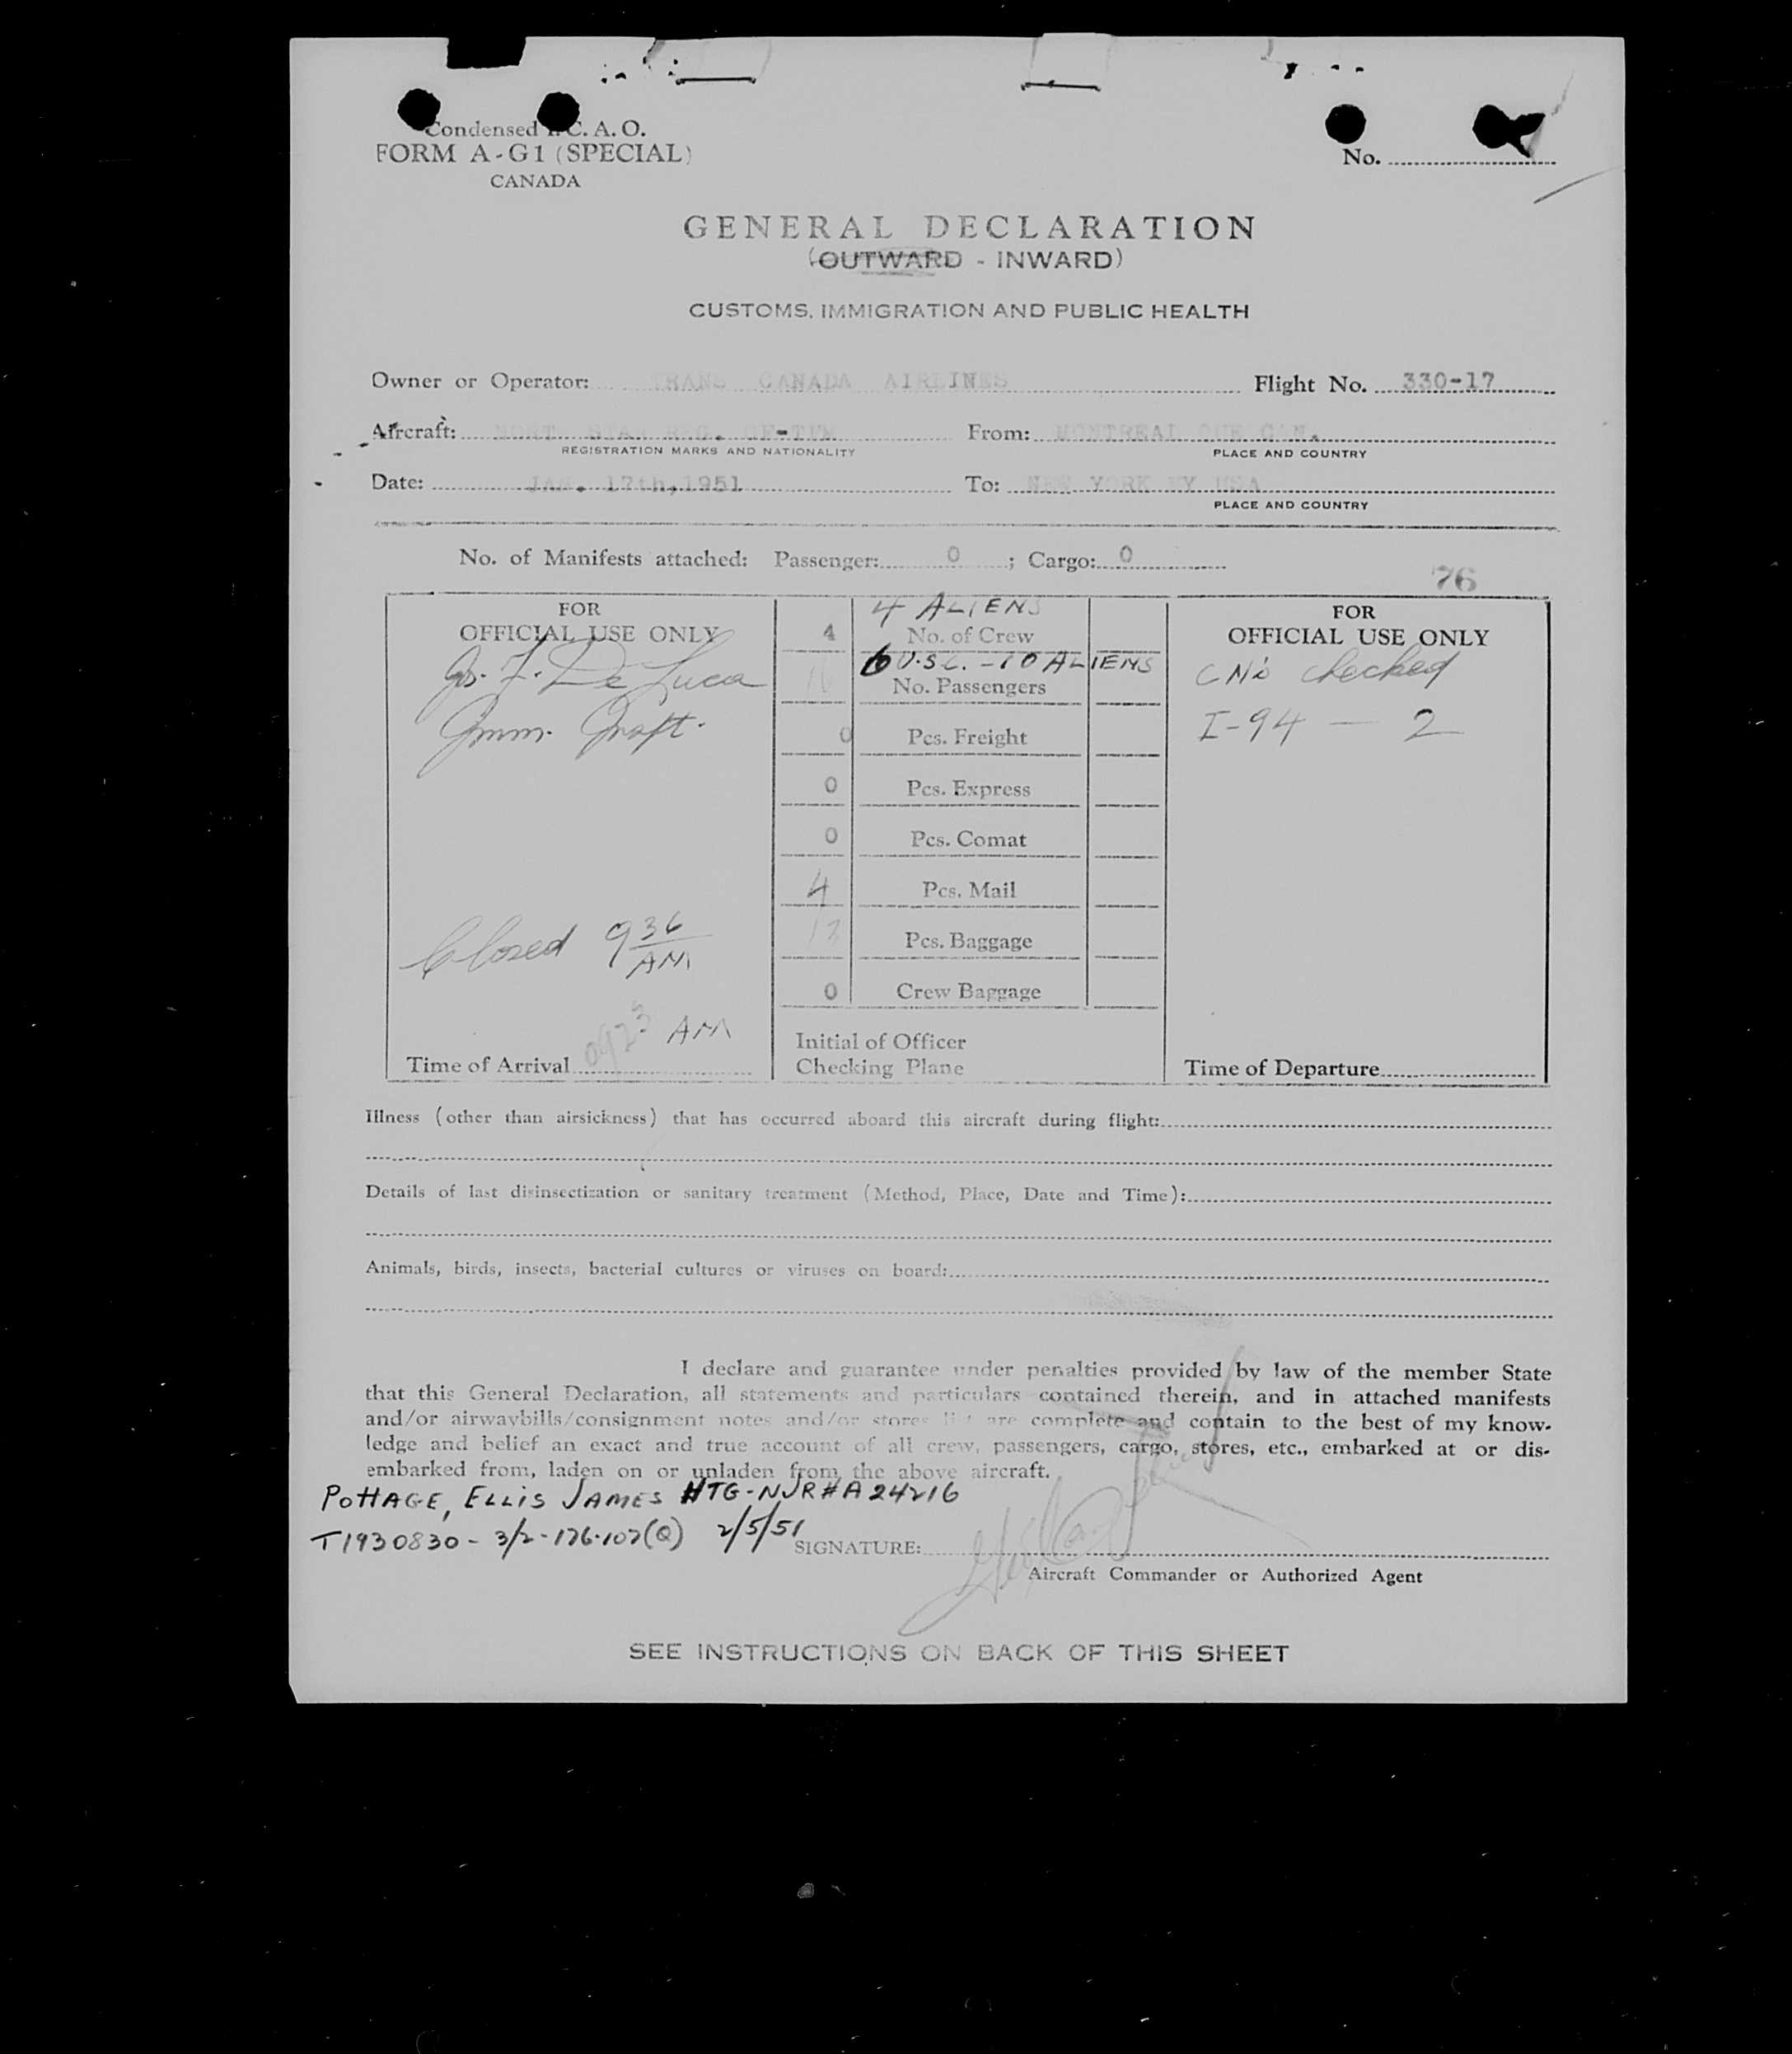 Condensed I. C. A. O.
FORM A-G1 (SPECIAL)
CANADA
No.
GENERAL DECLARATION
(OUTWARD - INWARD)
CUSTOMS, IMMIGRATION AND PUBLIC HEALTH
Owner or Operator: TRANS CANADA AIRLINES Flight No. 330-17
Aircraft: NORTH STAR REG. From: MONTREAL QUE CAN.
REGISTRATION MARKS AND NATIONALITY PLACE AND COUNTRY
Date: JAN. 17th,1951 To: NEW YORK NY USA
PLACE AND COUNTRY
No. of Manifests attached: Passenger: 0 ; Cargo: 0
76
FOR
OFFICIAL USE ONLY
De Luca
Imm.
Closed 9 36
AM
Time of Arrival 0923 AM
4 ALIENS
4 No. of Crew
6 U.S.C. - 10 ALIENS
16 No. Passengers
0 Pcs. Freight
0 Pcs. Express
0 Pcs. Comat
4 Pcs. Mail
13 Pcs. Baggage
0 Crew Baggage
Initial of Officer
Checking Plane
FOR
OFFICIAL USE ONLY
checked
I-94 — 2
Time of Departure
Illness (other than airsickness) that has occurred aboard this aircraft during flight:
Details of last disinsectization or sanitary treatment (Method, Place, Date and Time):
Animals, birds, insects, bacterial cultures or viruses on board:
I declare and guarantee under penalties provided by law of the member State
that this General Declaration, all statements and particulars contained therein, and in attached manifests
and/or airwaybills/consignment notes and/or stores list are complete and contain to the best of my know-
ledge and belief an exact and true account of all crew, passengers, cargo, stores, etc., embarked at or dis-
embarked from, laden on or unladen from the above aircraft.
POTTAGE, ELLIS JAMES HTG-NJR#A24216
T1930830 - 3/2-176-107(Q) 2/5/51
SIGNATURE:
Aircraft Commander or Authorized Agent
SEE INSTRUCTIONS ON BACK OF THIS SHEET